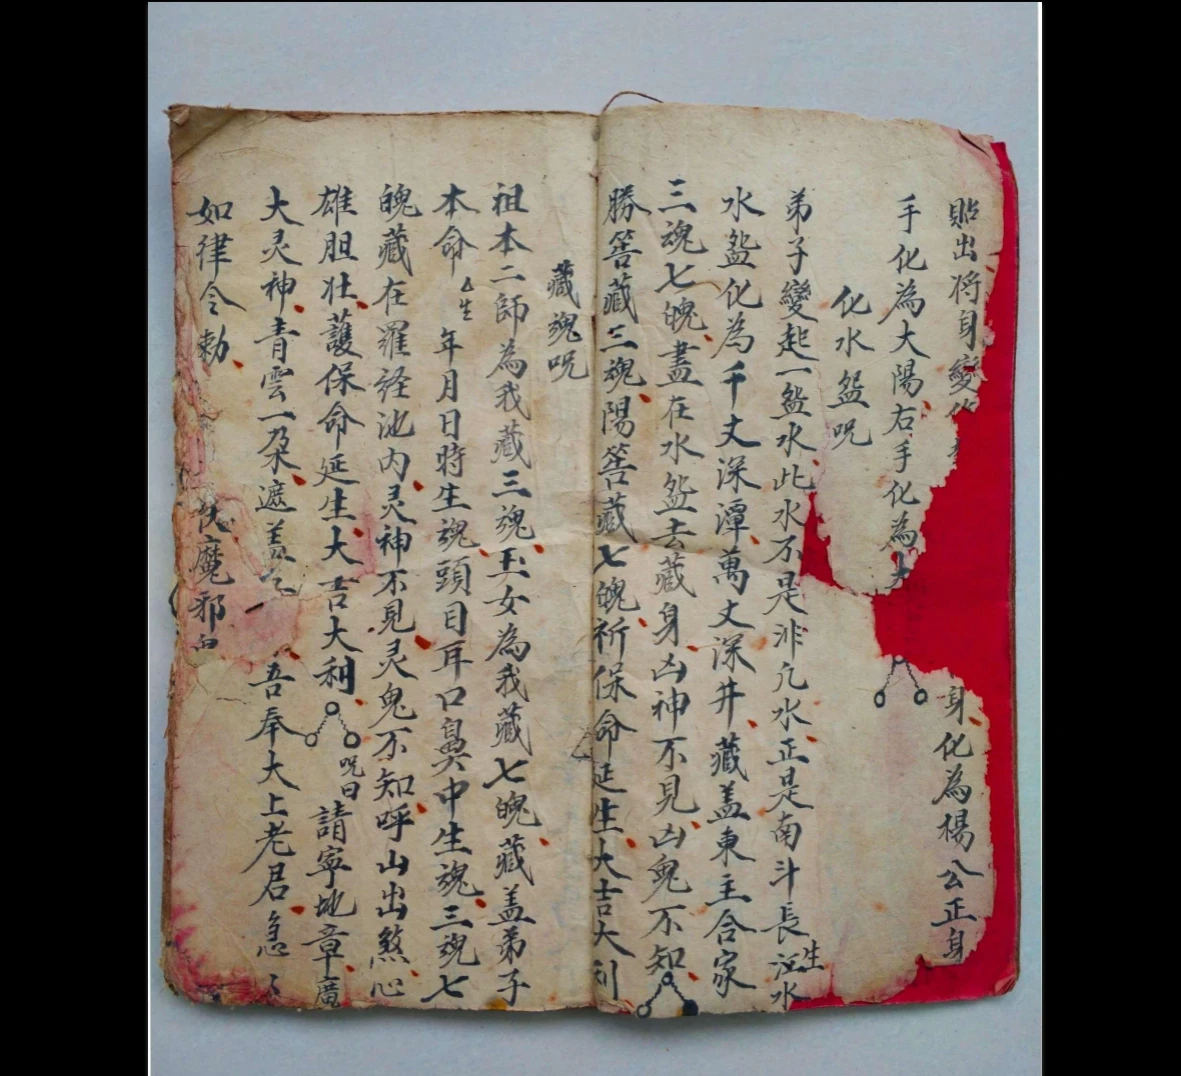 貼出将身變
身化為楊公正身
手化為大陽右手化為大
化水盌呪
弟子變起一盌水此水不是非凢水正是南斗長生江水
水盌化為千丈深潭萬丈深井藏盖東主合家
三魂七魄盡在水盌去藏身凶神不見凶鬼不知
勝筶藏三魂陽筶藏七魄祈保命延生大吉大利
藏魂呪
祖本二師為我藏三魂玉女為我藏七魄藏盖弟子
本命厶生年月日時生魂頭目耳口鼻中生魂三魂七
魄藏在羅経池内灵神不見灵鬼不知呼山出煞心
雄胆壮護保命延生大吉大利呪曰請寧地章廣
大灵神青雲一朶遮盖吾奉大上老君急〻
如律令勅
魔邪